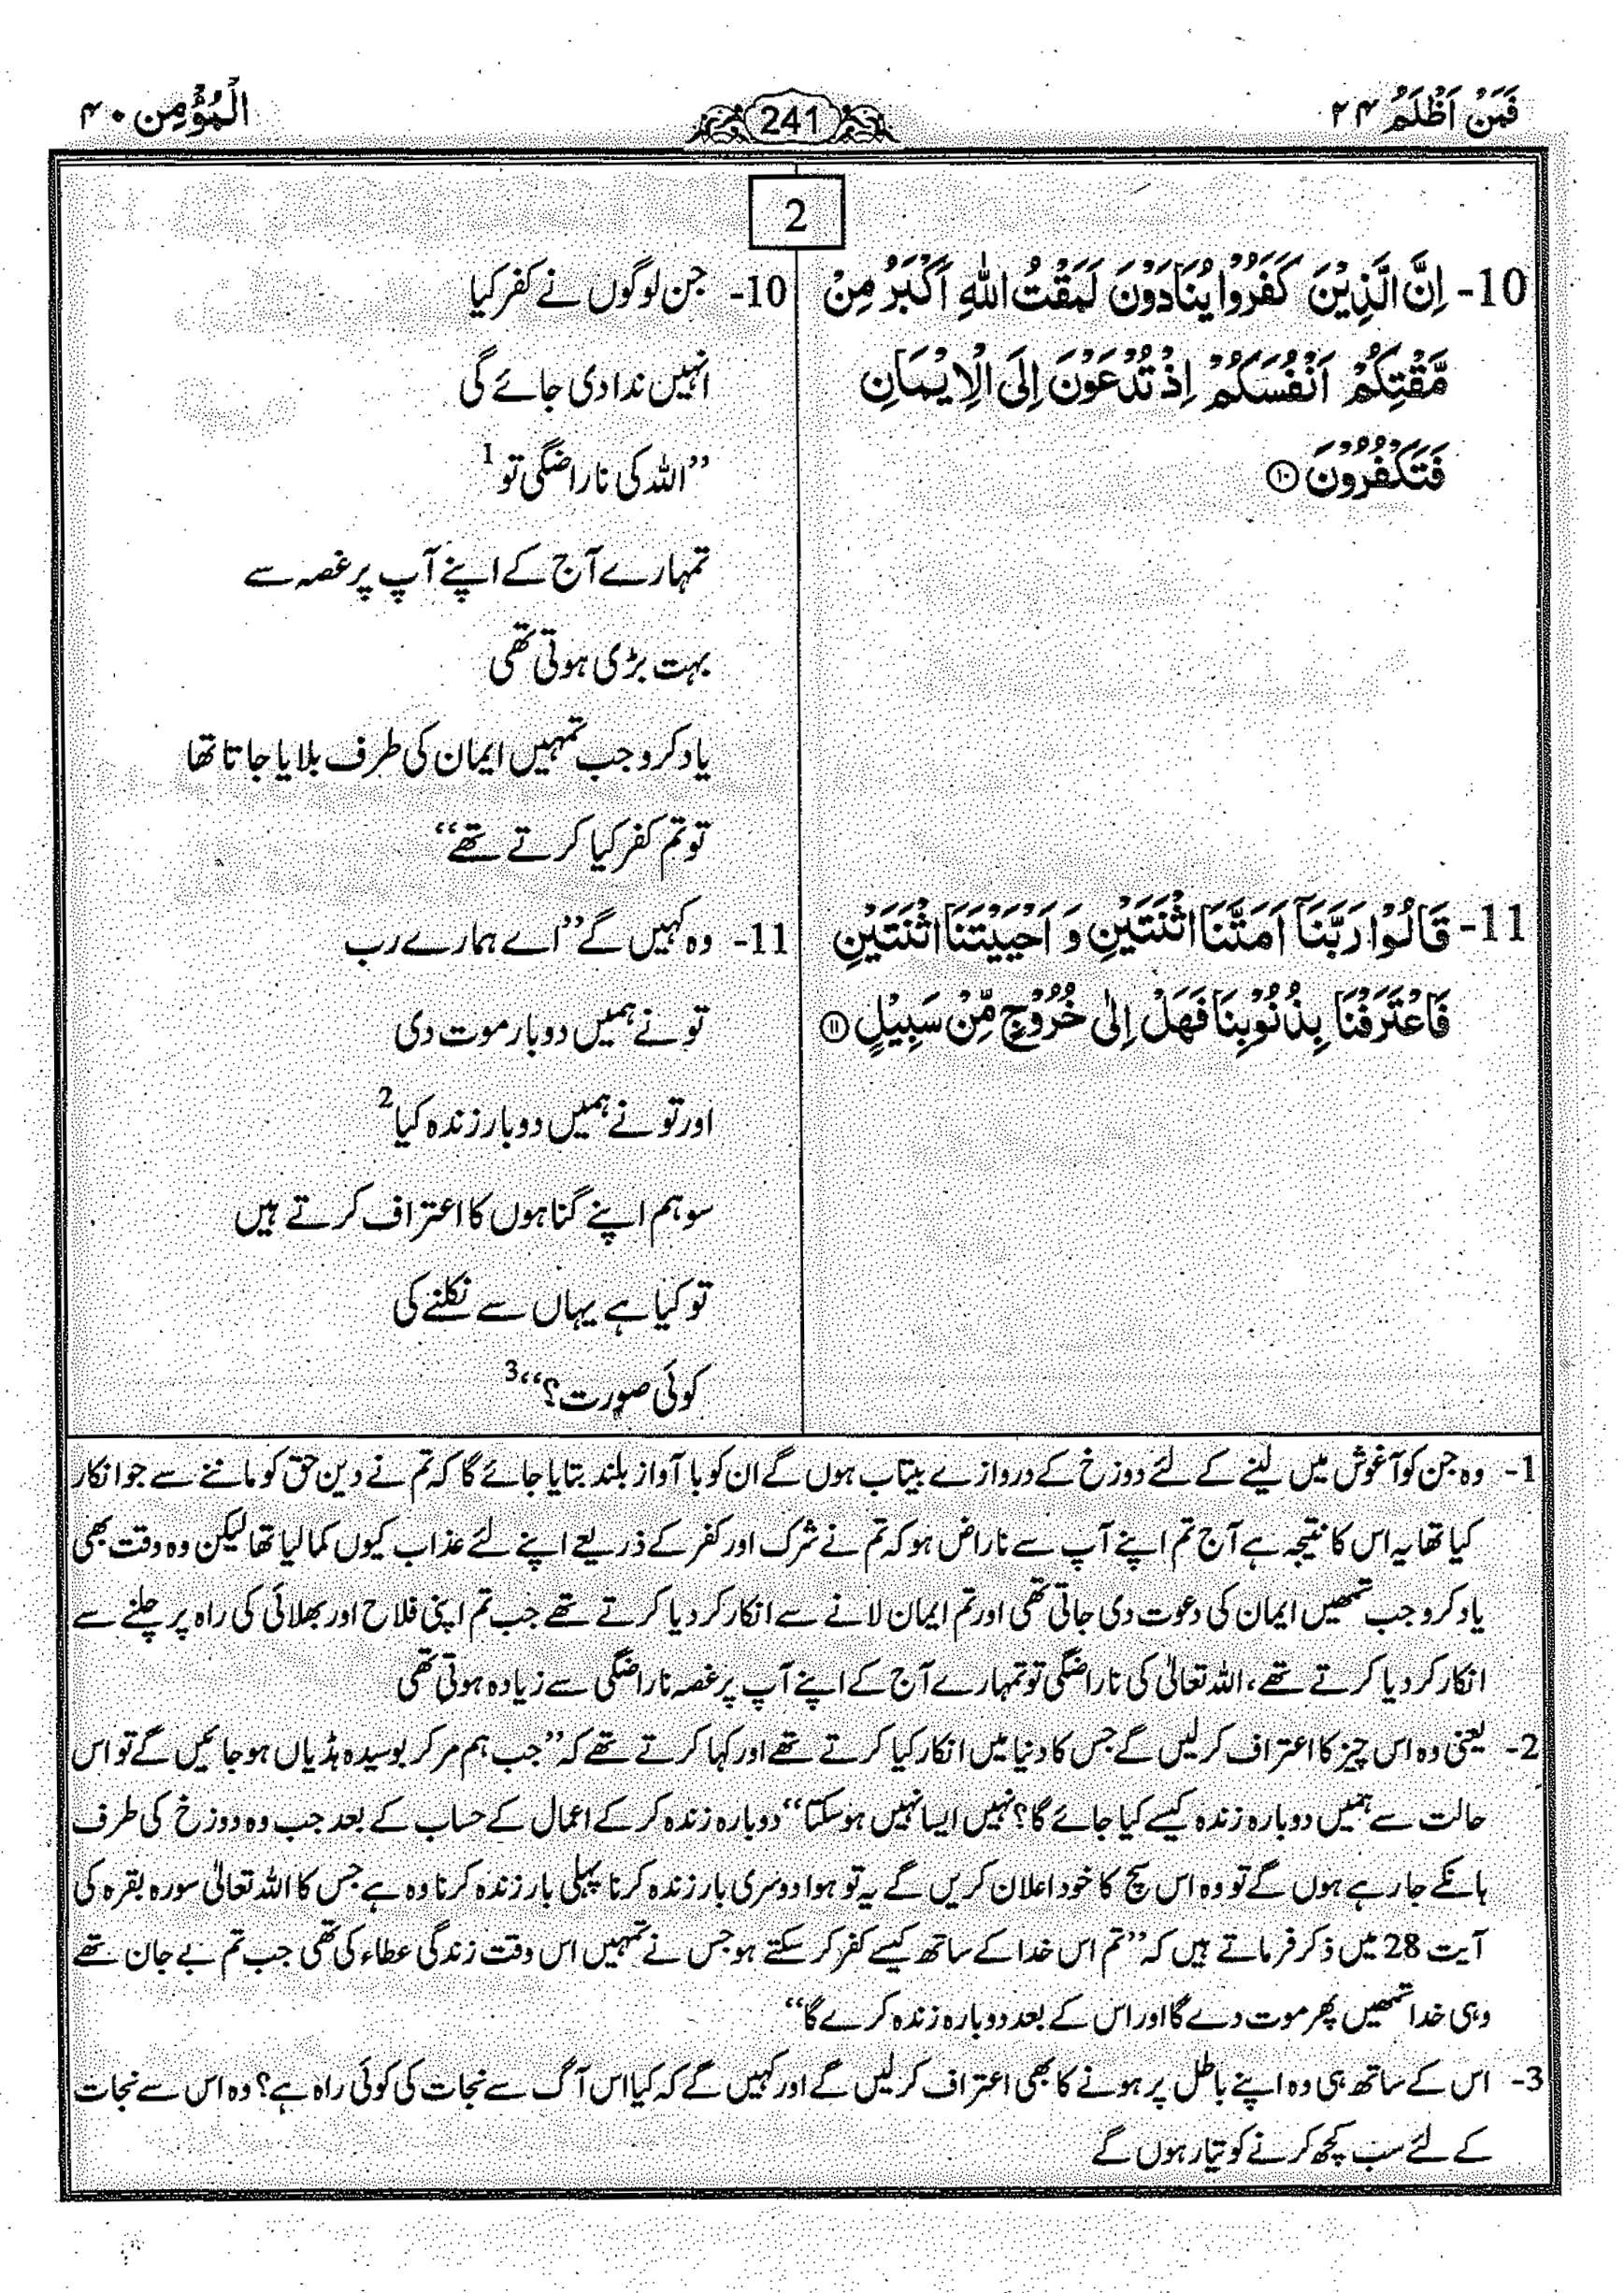 فَمَنْ اَظْلَمُ ۲۴
241
الْمُؤْمِن ۴۰
2
10- اِنَّ الَّذِيْنَ كَفَرُوْا يُنَادَوْنَ لَمَقْتُ اللّٰهِ اَكْبَرُ مِنْ
مَّقْتِكُمْ اَنْفُسَكُمْ اِذْ تُدْعَوْنَ اِلَى الْاِيْمَانِ
فَتَكْفُرُوْنَ ⑩
11- قَالُوْا رَبَّنَآ اَمَتَّنَا اثْنَتَيْنِ وَ اَحْيَيْتَنَا اثْنَتَيْنِ
فَاعْتَرَفْنَا بِذُنُوْبِنَا فَهَلْ اِلٰى خُرُوْجٍ مِّنْ سَبِيْلٍ ⑪
10- جن لوگوں نے کفر کیا
انہیں ندا دی جائے گی
”اللہ کی ناراضگی تو 1
تمہارے آج کے اپنے آپ پر غصہ سے
بہت بڑی ہوتی تھی
یاد کرو جب تمہیں ایمان کی طرف بلایا جاتا تھا
تو تم کفر کیا کرتے تھے“
11- وہ کہیں گے ”اے ہمارے رب
تو نے ہمیں دوبار موت دی
اور تو نے ہمیں دوبار زندہ کیا 2
سو ہم اپنے گناہوں کا اعتراف کرتے ہیں
تو کیا ہے یہاں سے نکلنے کی
کوئی صورت؟“ 3
1- وہ جن کو آغوش میں لینے کے لئے دوزخ کے دروازے بیتاب ہوں گے ان کو با آواز بلند بتایا جائے گا کہ تم نے دین حق کو ماننے سے جو انکار
کیا تھا یہ اس کا نتیجہ ہے آج تم اپنے آپ سے ناراض ہو کہ تم نے شرک اور کفر کے ذریعے اپنے لئے عذاب کیوں کما لیا تھا لیکن وہ وقت بھی
یاد کرو جب تمھیں ایمان کی دعوت دی جاتی تھی اور تم ایمان لانے سے انکار کر دیا کرتے تھے جب تم اپنی فلاح اور بھلائی کی راہ پر چلنے سے
انکار کر دیا کرتے تھے، اللہ تعالٰی کی ناراضگی تو تمہارے آج کے اپنے آپ پر غصہ ناراضگی سے زیادہ ہوتی تھی
2- یعنی وہ اس چیز کا اعتراف کر لیں گے جس کا دنیا میں انکار کیا کرتے تھے اور کہا کرتے تھے کہ ”جب ہم مر کر بوسیدہ ہڈیاں ہو جائیں گے تو اس
حالت سے ہمیں دوبارہ زندہ کیسے کیا جائے گا؟ نہیں ایسا نہیں ہو سکتا“ دوبارہ زندہ کر کے اعمال کے حساب کے بعد جب وہ دوزخ کی طرف
ہانکے جا رہے ہوں گے تو وہ اس سچ کا خود اعلان کریں گے یہ تو ہوا دوسری بار زندہ کرنا پہلی بار زندہ کرنا وہ ہے جس کا اللہ تعالٰی سورہ بقرہ کی
آیت 28 میں ذکر فرماتے ہیں کہ ”تم اس خدا کے ساتھ کیسے کفر کر سکتے ہو جس نے تمہیں اس وقت زندگی عطاء کی تھی جب تم بے جان تھے
وہی خدا تمھیں پھر موت دے گا اور اس کے بعد دوبارہ زندہ کرے گا“
3- اس کے ساتھ ہی وہ اپنے باطل پر ہونے کا بھی اعتراف کر لیں گے اور کہیں گے کہ کیا اس آگ سے نجات کی کوئی راہ ہے؟ وہ اس سے نجات
کے لئے سب کچھ کرنے کو تیار ہوں گے